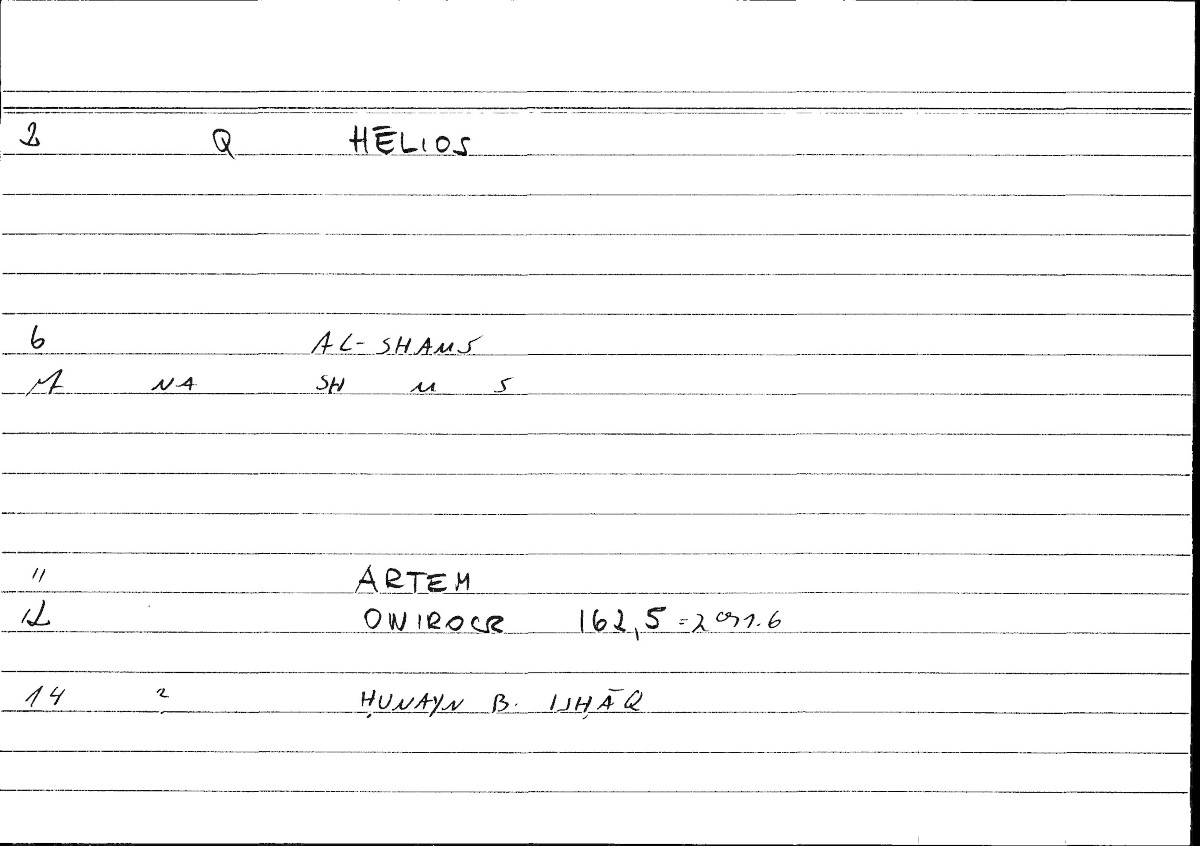 2 Q HĒLIOS
6 AL-SHAMS
NA SH M S
11 ARTEM
12 ONIROCR 162,5 =
14 2 ḤUNAYN B. ISḤĀQ